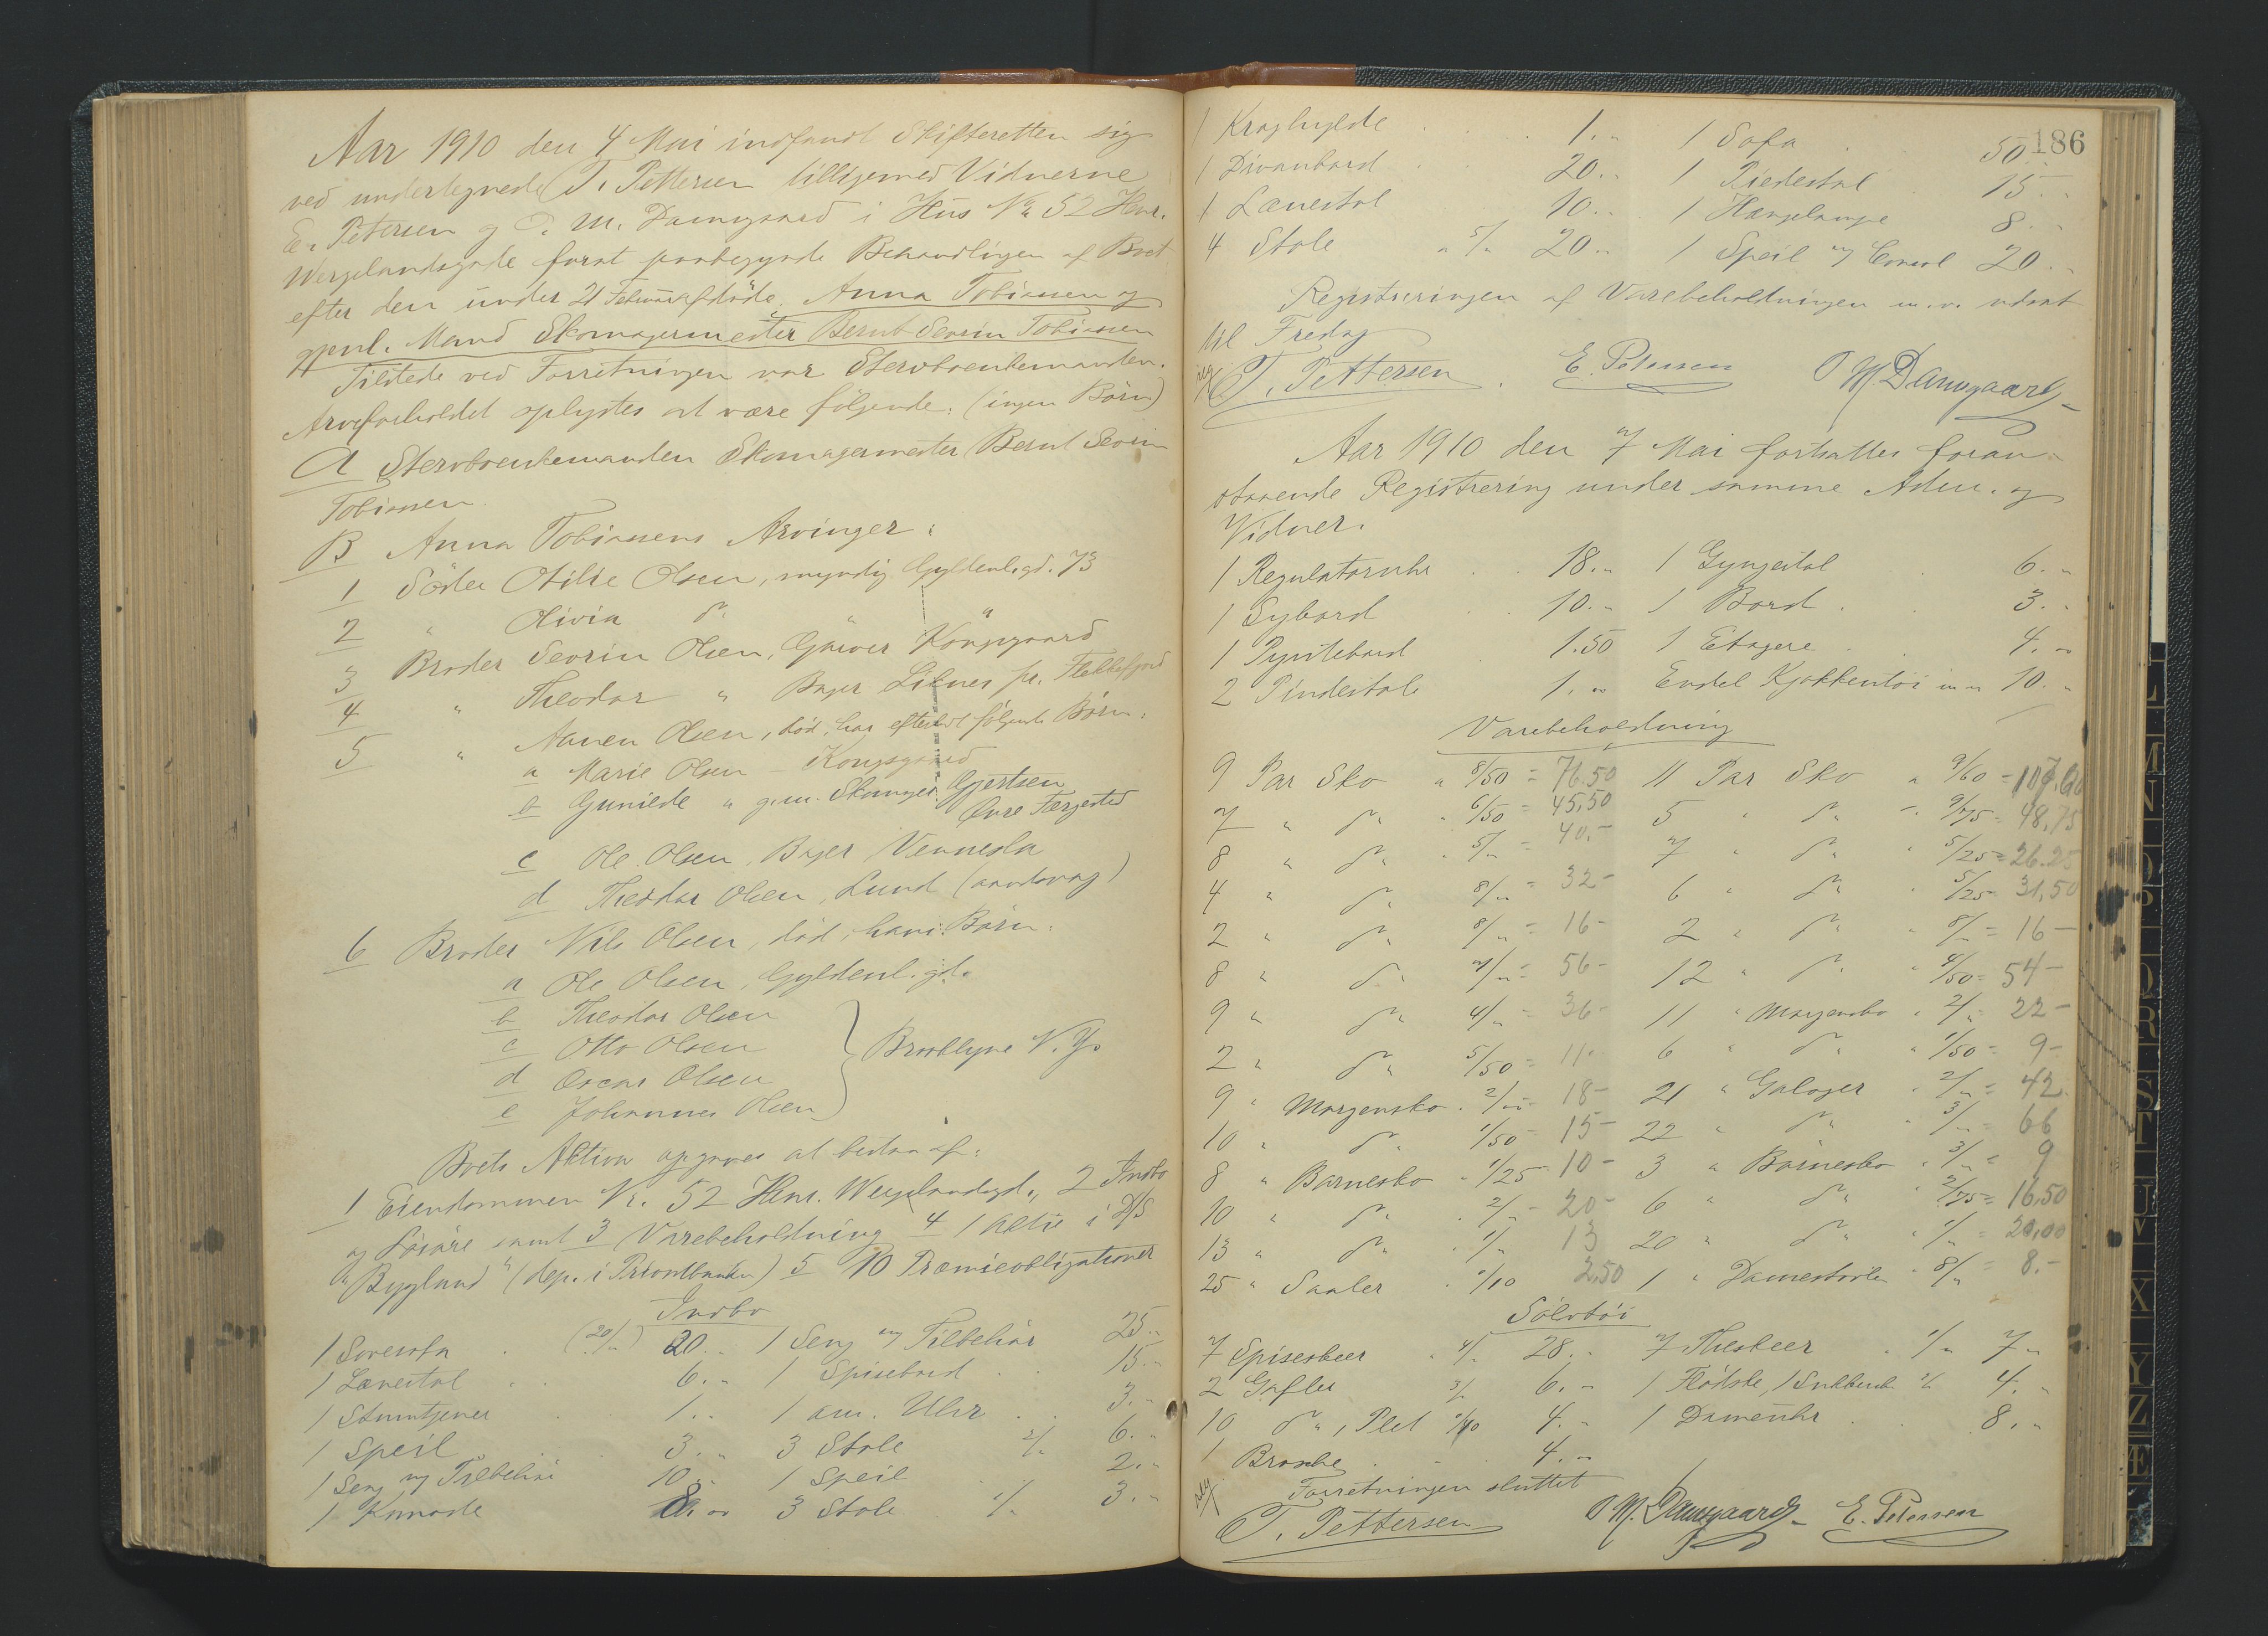 Aar 1910 den 4 Mai indfandt Skifteretten sig
ved undertegnede T. Pettersen tilligemed Vidnerne
E. Petersen og O. M. Damgaard i Hus No 52 Henr.
Wergelandsgade forat paabegynde Behandlingen af Boet
efter den under 21 Februar afdøde Anna Tobiassen og
gjenl. Mand Skomagermester Bernt Severin Tobiassen
Tilstede ved Forretningen var Stervboenkemanden.
Arveforholdet oplystes at være følgende: (ingen Børn)
A Stervboenkemanden Skomagermester Bernt Severin
Tobiassen
B Anna Tobiassens Arvinger:
1 Søster Otilie Olsen, myndig Gyldenl. gd. 73
2 " Olivia do " "
3 Broder Severin Olsen, Garver Kongsgaard
4 " Theodor " Bager Liknes pr. Flekkefjord
5 " Aanen Olsen, død, har efterladt følgende Børn:
a Marie Olsen - Kongsgaard
b Gunilde " g. m. Skomager Gjertsen
Øvre Torgested
c Ole Olsen, Bager Vennesla
d Theodor Olsen, Lund (aandsvag)
6 Broder Nils Olsen, død, hans Børn:
a Ole Olsen, Gyldenl. gd.
b Theodor Olsen
c Otto Olsen } Brooklyne N. Y.
d Oscar Olsen
e Johannes Olsen
Boets Aktiva opgaves at bestaa af:
1 Eiendommen Nr. 52 Henr. Wergelandsgd., 2 Indbo
og Løsøre samt 3 Varebeholdning 4 1 Aktie i D/S
"Bygland" (dep. i Privatbanken) 5 10 Præmieobligationer
Indbo
1 Sovesofa (20/") 20 " 1 Seng m/ Tilbehør 25 "
1 Lænestol 6. " 1 Spisebord 15 "
1 Stumtjener 1. " 1 am. Uhr 3. "
1 Speil 3. " 3 Stole 2/" 6. "
1 Seng m/ Tilbehør 10. " 1 Speil 2. "
1 Komode 8. " 3 Stole 1/" 3. "
186
1 Kraghylde 1. " 1 Sofa 50
1 Divanbord 20. " 1 Piedestal 15 "
1 Lænestol 10. " 1 Hængelampe 8. "
4 Stole a 5/" 20 " 1 Speil m/ Consol 20. "
Registreringen af Varebeholdningen m. v. udsat
til Fredag
T. Pettersen. E. Petersen O M Damgaard
Aar 1910 den 7 Mai fortsattes foran-
staaende Registrering under samme Adm. og
Vidner.
1 Regulatoruhr 18. " 1 Gyngestol 6. "
1 Sybord 10. " 1 Bord 3. "
1 Pyntebord 1.50 1 Etagere 4. "
2 Pindestole 1. " Endel Kjøkkentøi m. m 10. "
Varebeholdning
9 Par Sko a 8/50 = 76.50 11 Par Sko a 9/60 =
7 " do " 6/50 = 45.50 5 " do " 9/75 = 48.75
8 " do " 5/" = 40.- 7 " do " 5/25 = 26.25
4 " do 8/" = 32- 6 " do " 5/25 = 31,50
2 " do 8/" = 16- 2 " do " 8/" = 16-
8 " do 7/" = 56- 12 " do " 4/50 = 54-
9 " do 4/" = 36- 11 " Morgensko " 2/" = 22-
2 " do 5/50 = 11- 6 " do " 1/50 = 9-
9 " Morgensko " 2/" = 18- 21 " Galoger " 2/" = 42
10 " do 1/50 - 15- 22 " do " 3/" = 66
8 " Barnesko " 1/25 - 10- 3 " Børnesko " 3/" = 9
10 " do " 2/" - 20- 6 " do " 2/75 = 16.50
13 " do " 1/" 13 20 " do " 1/" = 20,00
25 " Saaler " "/10 2.50 1 " Damestøvler " 8/" = 8.-
Sølvtøi
7 Spiseskeer " 4/" 28. " 7 Theskeer " 1/" 7 "
2 Gafler 3/" 6. " 1 Flødske, 1 Sukkersk. 2/" 4. "
10 do, Plet "/40 4. " 1 Dameuhr 8. "
1 Broche 4. "
Forretningen sluttet
T. Pettersen O M. Damgaard E. Petersen